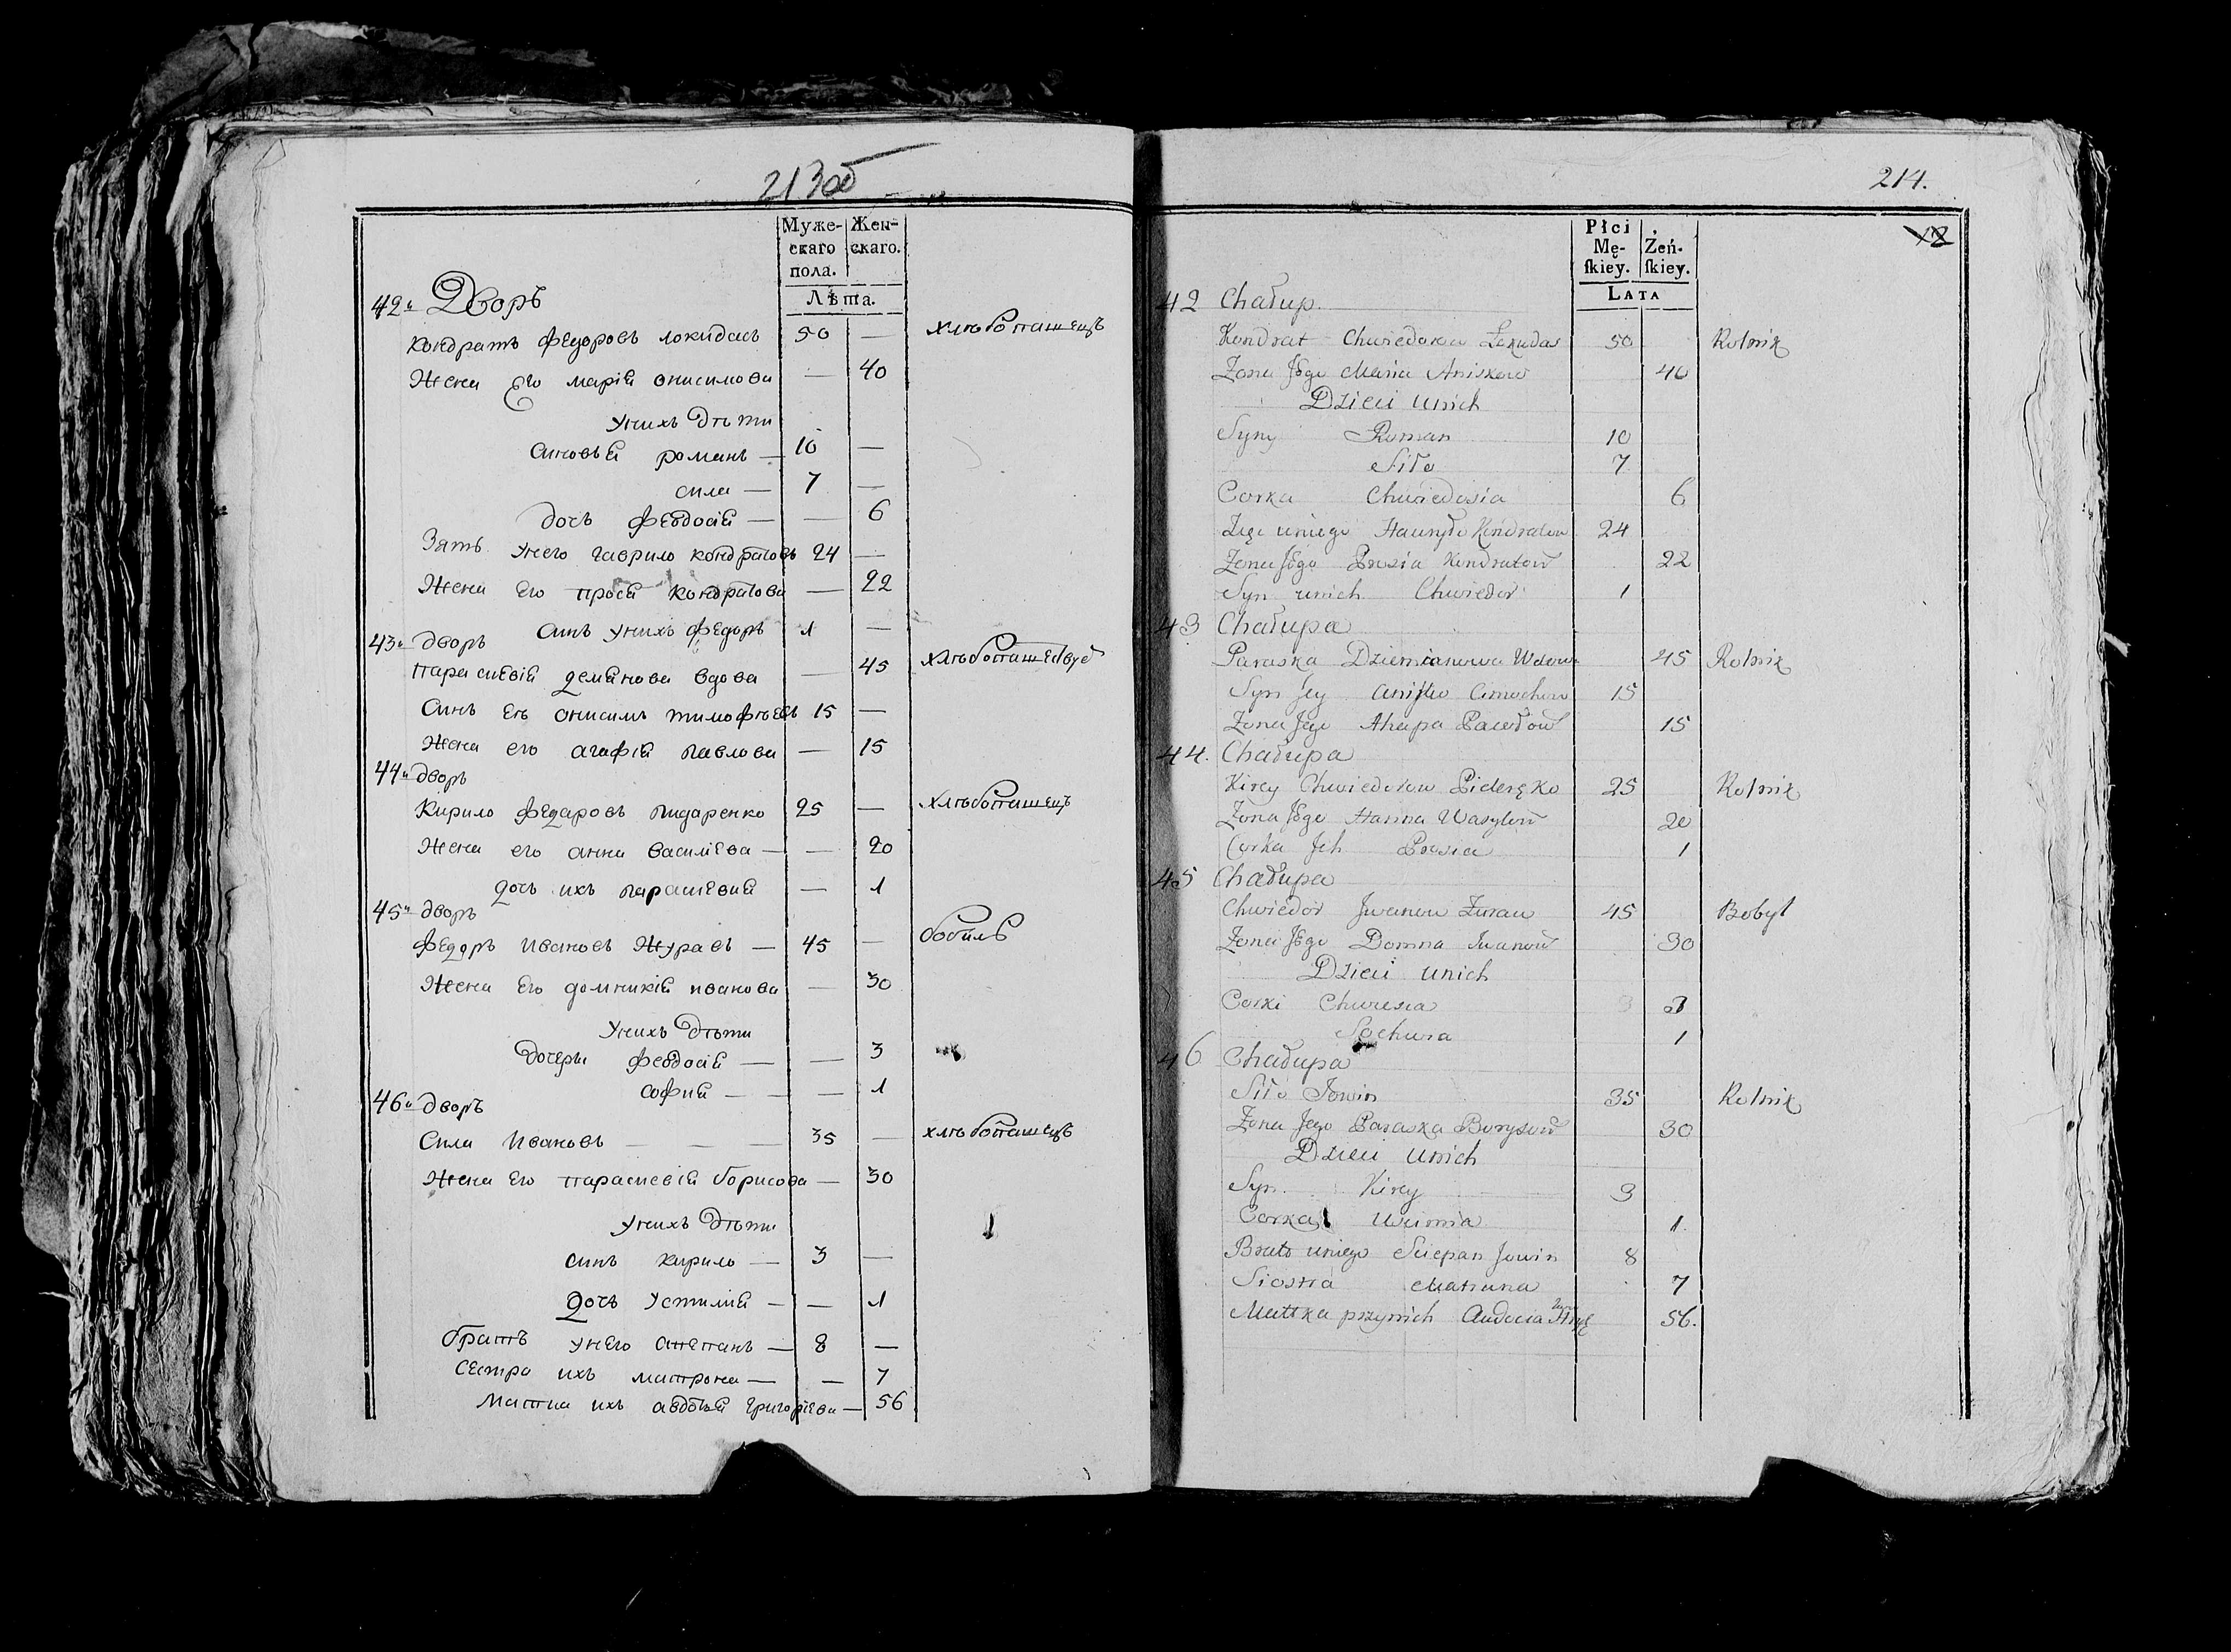 213об
Муже- Жен-
скаго скаго.
пола.
Лѣта.
42й Дворъ
Кондратъ Федоровъ Локидасъ 50 — хлѣбопашецъ
Жена Его Марія Онисимова — 40
У нихъ Дѣти
Синовья Романъ — 10 —
Сила — 7 —
Дочъ Феодосія — — 6
Зять У него Гаврило Кондратовъ 24 —
Жена Его Прося Кондратова — 22
Синъ У нихъ Федоръ 1 —
43й Дворъ
Параскевія Демянова вдова — 45
Синъ Её Онисимъ Тимофѣевъ 15 —
Жена его Агафія Павлова — 15
44й Дворъ
Кирило Федаровъ Пидаренко 25 — хлѣбопашецъ
Жена его Анна Василіева — — 20
Дочъ ихъ Параскевия — 1
45й Дворъ
Федоръ Ивановъ Журавъ — 45 — бобиль
Жена Его Домникія Иванова — 30
У нихъ Дѣти
Дочери Феодосія — — 3
София — — — 1
46й Дворъ
Сила Ивановъ — — — 35 — хлѣбопашецъ
Жена Его Параскевія Борисова — 30
У нихъ Дѣти
Синъ Кирило — 3 —
Дочъ Устимия — — 1
братъ У него Степанъ — 8 —
Сестра ихъ Матрона — — 7
Матка ихъ Авдотья Григоріева — 56
214.
12
Płci Żeń-
Mę- ſkiey.
ſkiey.
LATA
42 Chałup.
Kondrat Chwiedorow Lokudas 50 Rolnik
Zona Jego Maria Aniskow 40
Dzieci unich
Syny Roman 10
Siło 7
Corka Chwiedosia 6
Zięć uniego Hauryło Kondratow 24
Zona Jego Prosia Kondratow 22
Syn unich Chwiedor 1
43 Chałupa
Paraska Dziemianowa Wdowa 45 Rolnik
Syn Jey Anisko Cimochow 15
Zona Jego Ahapa Pawłow 15
44. Chałupa
Kirey Chwiedorow Pideręko 25 Rolnik
Zona Jego Hanna Wasylow 20
Corka Jch Prosia 1
45 Chałupa
Chwiedor Jwanow Zuraw 45 Bobyl
Zona Jego Domna Jwanow 30
Dzieci unich
Corki Chwiesia 3
Sochwia 1
46 Chałupa
Siło Jowin 35 Rolnik
Zona Jego Paraska Borysow 30
Dzieci unich
Syn Kirey 3
Corka 1.
Brat uniego Sciepan Jowin 8
Siostra Matruna 7
Matka przynich Audocia 56.